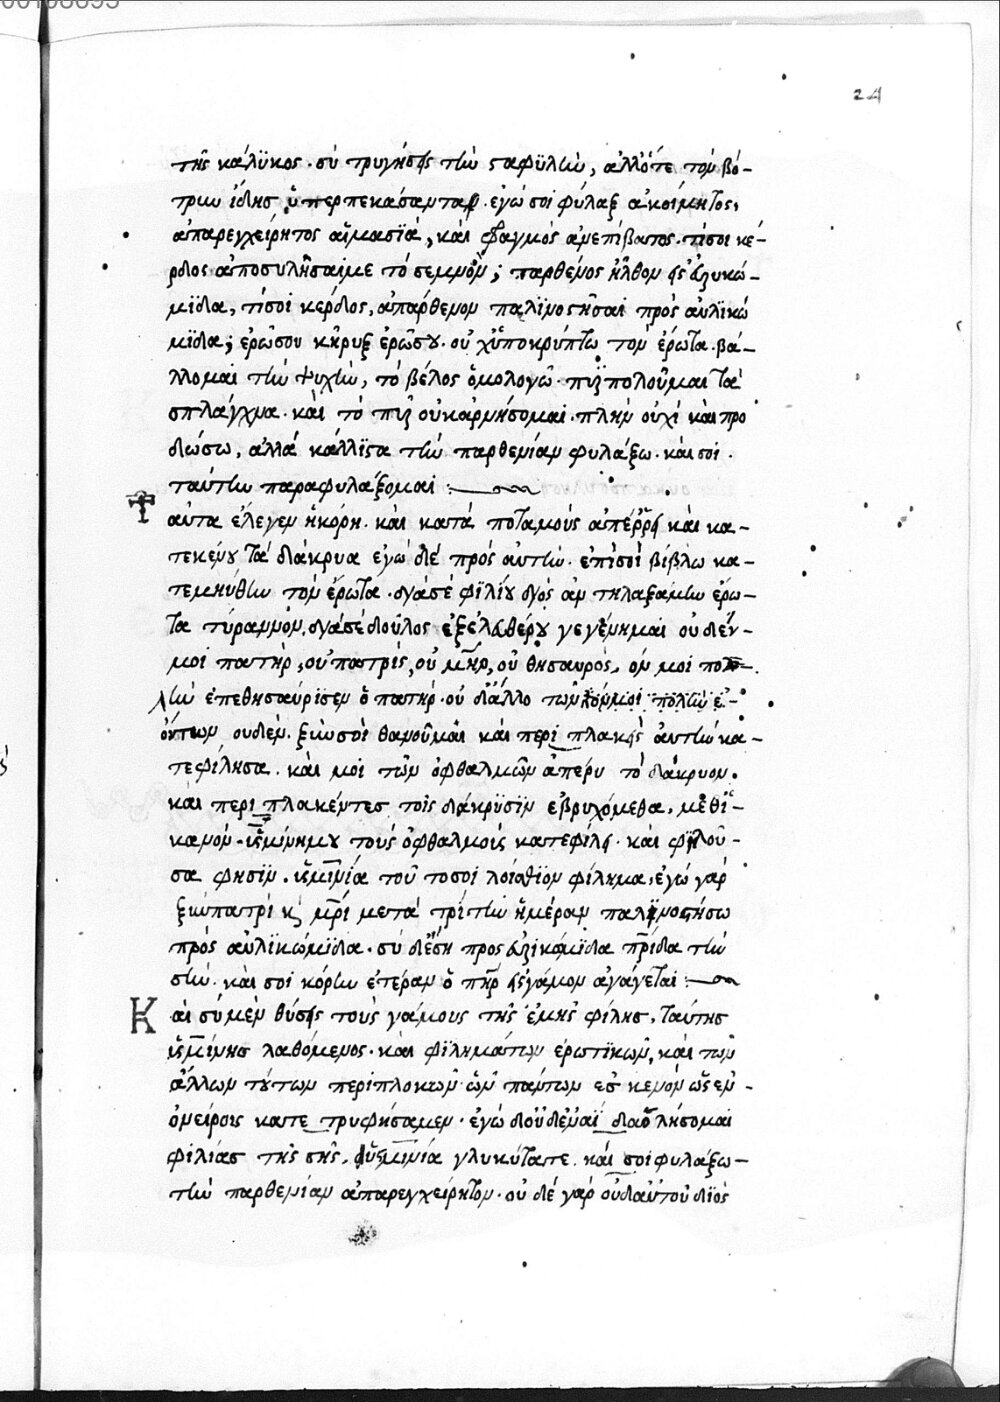 24
τῆς κάλϋκος · σὺ τρυγήσεις τὴν σαφϋλὴν, ἀλλ' ὅτε τὸν βό-
τρυν ἴδης ὑπερπεκάσαντα · ἐγώ σοι φύλαξ ἀκοίμητος,
ἀπαρεγχείρητος αἱμασϊὰ, καὶ φραγμὸς ἀνεπίβατος · τί σοι κέ-
ρδος ἀποσυλῆσαί με τὸ σεμνὸν; παρθένος ἦλθον εἰς ἀυλικώ-
μϊδα, τί σοι κέρδος, ἀπάρθενον παλϊνοςῆσαι πρὸς αὐλϊκώ
μϊδα; ἐρῶ σου κῆρυξ ἐρῶ σου · οὐχ ὑποκρύπτω τὸν ἔρωτα · βά-
λλομαι τὴν ψυχὴν, τὸ βέλος ὁμολογῶ · πυρπολοῦμαι τὰ
σπλάγχνα · καὶ τὸ πῦρ οὐκ ἀρνήσομαι · πλὴν οὐχὶ καὶ προ
δώσω, ἀλλὰ κάλλϊςα τὴν παρθενίαν φυλάξω · καὶ σοὶ ·
ταύτην παραφυλάξομαι :
Ταῦτα ἔλεγεν ἡ κόρη · καὶ κατὰ ποταμοὺς ἀπέρρει καὶ κα-
τεκένου τὰ δάκρυα ἐγὼ δὲ πρὸς αὐτὴν · ἐπὶ σοὶ βίβλω κα-
τεμηνύθην τὸν ἔρωτα · διὰ σὲ φϊλίου διὸς ἀντηλαξάμην ἔρω-
τα τύραννον, διὰ σὲ δοῦλος ἐξ ἐλευθέρου γεγένημαι οὐδὲν
μοι πατὴρ, οὐ πατρὶς, οὐ μῆρ, οὐ θησαυρὸς, ὃν μοι πολ-
λὴν ἐπεθησαύρϊσεν ὁ πατὴρ · οὐδ' ἄλλο τῶν
όντων οὐδὲν · ξὺν σοὶ θανοῦμαι καὶ περιπλακεὶς αὐτὴν κα-
τεφίλησα · καὶ μοι τῶν ὀφθαλμῶν ἀπέρρει τὸ δάκρυον ·
καὶ περιπλακέντες τοῖς δάκρϋσϊν ἐβρυχόμεθα, μεθ' ἱ-
κανὸν · ὑσμίνη μου τοὺς ὀφθαλμοὺς κατεφίλει · καὶ φιλοῦ-
σα φησὶν · ὑσμινία τοῦτό σοι λοίσθϊον φίλημα, ἐγὼ γὰρ
ξὺν πατρὶ κ μρὶ μετὰ τρίτην ἡμέραν παλϊνοςήσω
πρὸς αὐλϊκώμϊδα · σὺ δ' ἔση πρὸς εὐρικώμϊδα πρίδα τὴν
σὴν · καὶ σοὶ κόρην ἑτέραν ὁ πῆρ εἰς γάμον ἀγάγεται :
Καὶ σὺ μὲν θύσεις τοὺς γάμους τῆς ἐμῆς φίλης, ταύτης
ὑσμίνης λαθόμενος · καὶ φϊλημάτων ἐρωτϊκῶν, καὶ τῶν
ἄλλων τούτων περιπλοκῶν · ὧν πάντων ἐς κενὸν ὡς ἐν -
ὀνείροις κατετρυφήσαμεν · ἐγὼ δ' οὐδέναϊ
φιλίας τῆς σῆς, ὑσμινία γλυκύτατε · καὶ σοι φυλάξω-
τὴν παρθενίαν ἀπαρεγχείρητον · οὐδὲ γὰρ οὐδ' αὐτοῦ διὸς